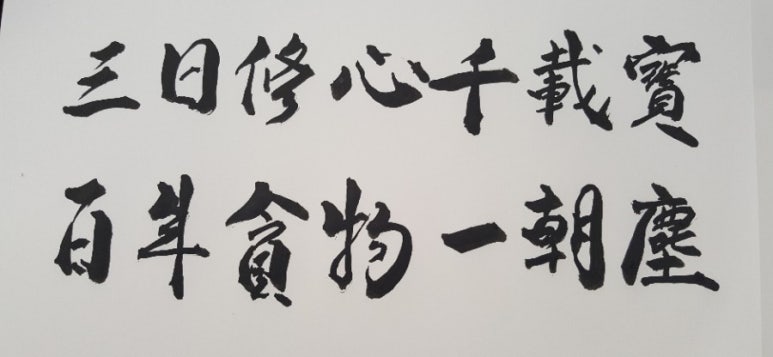 三日修心千載寳
百年貪物一朝塵